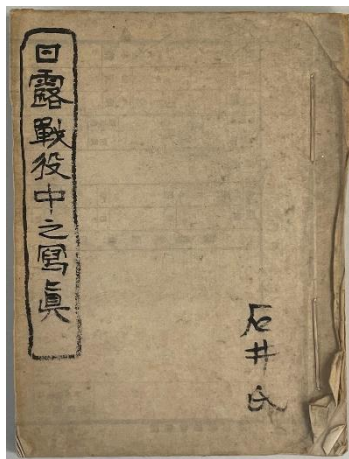 日露戰役中之寫眞
石井氏